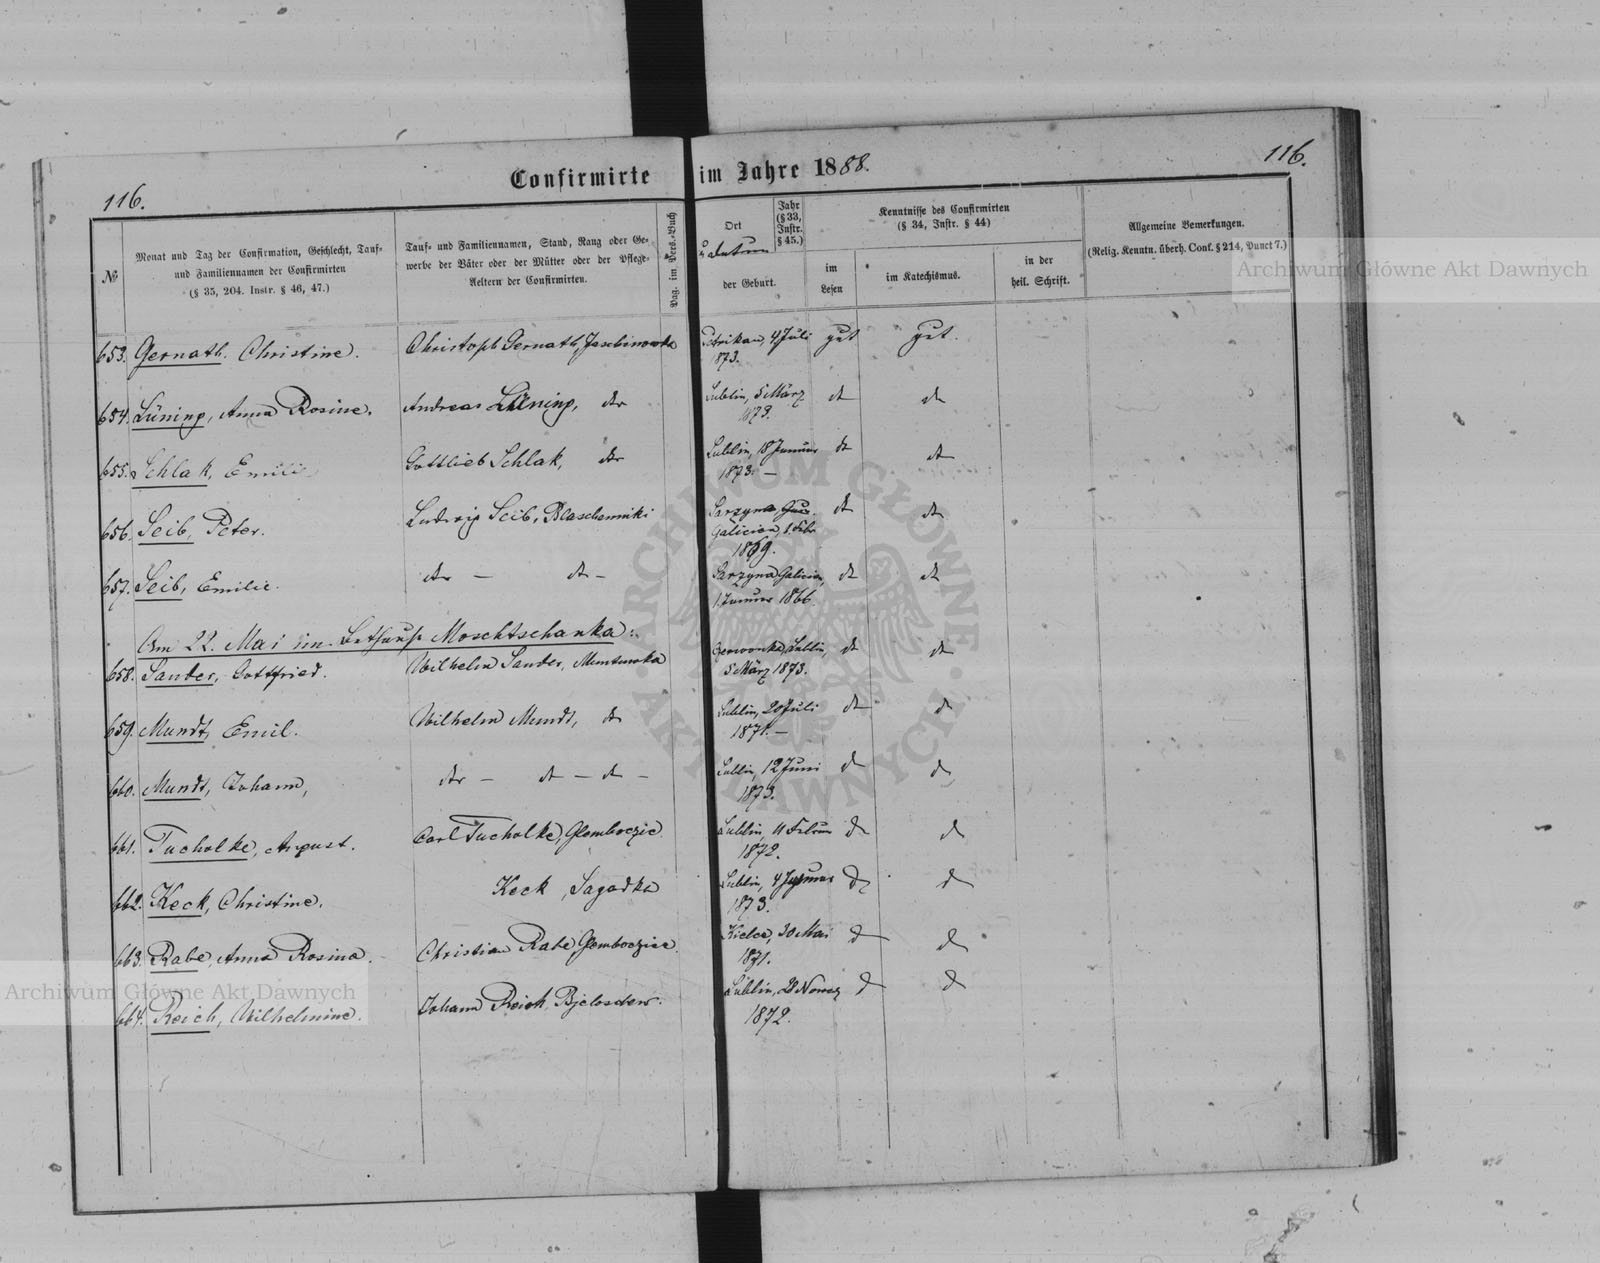 Confirmirte im Jahre 1888.
116.
116.
№
Monat und Tag der Confirmation, Geschlecht, Tauf-
und Familiennamen der Confirmirten
(§ 35, 204. Instr. § 46, 47.)
Tauf- und Familiennamen, Stand, Rang oder Ge-
werbe der Väter oder der Mütter oder der Pflege-
Aeltern der Confirmirten.
Pag. im Pers.-Buch
Ort
u Datum
der Geburt.
Jahr
(§ 33,
Instr.
§ 45.)
Kenntnisse des Confirmirten
(§ 34, Instr. § 44)
im
Lesen
im Katechismus.
in der
heil. Schrift.
Allgemeine Bemerkungen.
(Relig. Kenntn. überh. Conf. § 214, Punct 7.)
653. Gernath. Christine. Christoph Gernath, Petrikau, 4 Juli gut gut.
1873.
654. Lüning, Anna Rosine. Andreas Lüning, dto Lublin, 5 März dt dt
1873.
655. Schlak, Emilie Gottlieb Schlak, dto Lublin, 18 Januar dt dt
1873. —
656. Seib, Peter. Ludwig Seib, Blaschemniki Sarzyna dt dt
Galicien, 1. Febr
1869.
657. Seib, Emilie. dto — dt — Sarzyna Galicien, dt dt
1 Januar 1866
Am 22. Mai im Bethause Moschtschanka:
658. Sander, Gottfried. Wilhelm Sander, Lublin, dt dt
5 März 1873.
659. Mundt, Emil. Wilhelm Mundt, dt Lublin, 20 Juli dt dt
1871. —
660. Mundt, Johann, dto — dt — dt — Lublin, 12 Juni dt dt
1873.
661. Tucholke, August. Carl Tucholke, Glemboczie. Lublin, 11 Februar dt dt
1872.
662. Keck, Christine. Keck, Sagodka Lublin, 4 Januar dt dt
1873.
663. Rabe, Anna Rosina. Christian Rabe, Glemboczie. Kielce, 30 Mai dt dt
1871.
664. Reich, Wilhelmine. Johann Reich, Lublin, 28 Novez dt dt
1872.
Archiwum Główne Akt Dawnych
Archiwum Główne Akt Dawnych
ARCHIWUM GŁÓWNE · AKT DAWNYCH ·